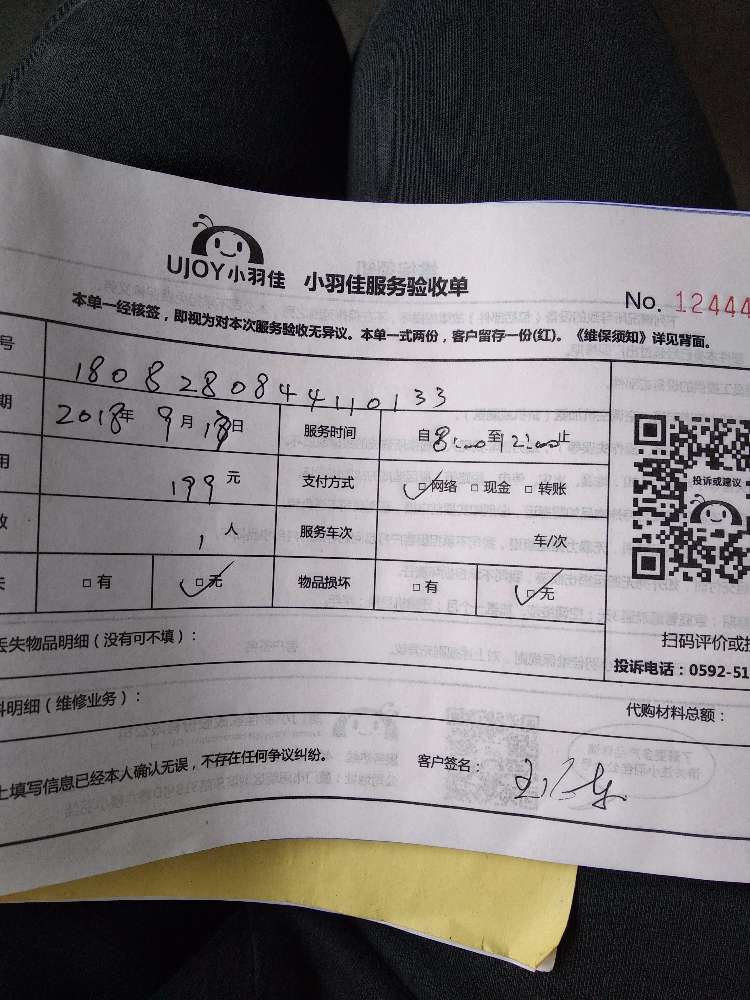 UJOY小羽佳 小羽佳服务验收单
No. 12444
本单一经核签，即视为对本次服务验收无异议。本单一式两份，客户留存一份(红)。《维保须知》详见背面。
号 180828084410133
期 2018年 9月 日 服务时间 自8:00至12:00止
用 199元 支付方式 ☑网络 □现金 □转账
1人 服务车次 车/次
□有 ☑无 物品损坏 □有 ☑无
投诉或建议
丢失物品明细（没有可不填）：
扫码评价或投
投诉电话：0592-51
料明细（维修业务）：
代购材料总额：
上填写信息已经本人确认无误，不存在任何争议纠纷。 客户签名：